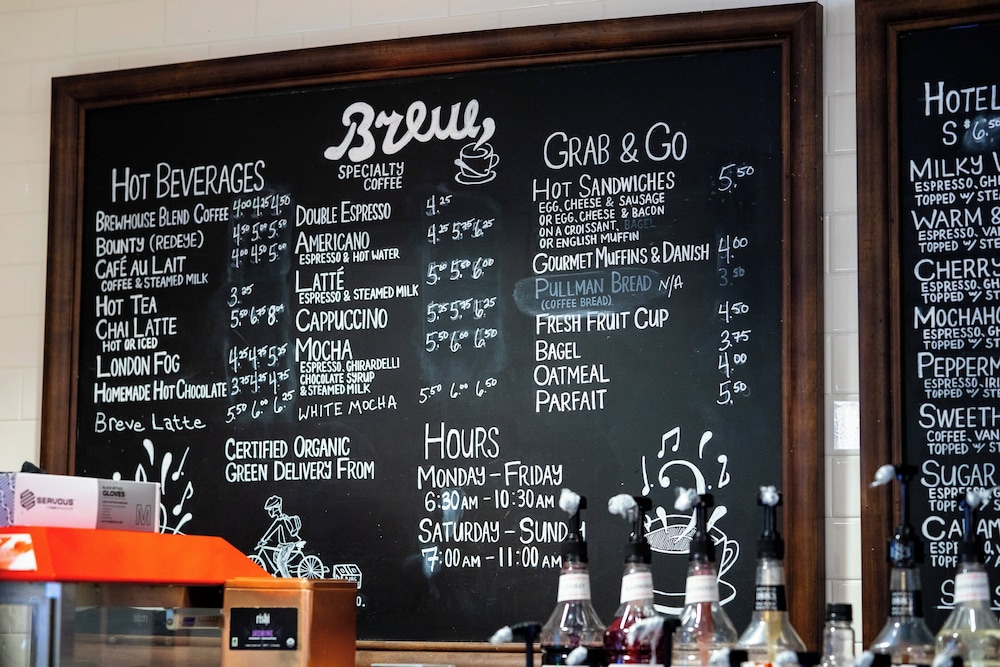 Brew
SPECIALTY
COFFEE
HOT BEVERAGES
BREWHOUSE BLEND COFFEE 4.00 4.25 4.50
BOUNTY (REDEYE) 4.50 5.00 5.50
CAFÉ AU LAIT 4.00 4.50 5.00
COFFEE & STEAMED MILK
HOT TEA 3.25
CHAI LATTE 5.50 6.75 8.00
HOT OR ICED
LONDON FOG 4.25 4.75 5.25
HOMEMADE HOT CHOCOLATE 3.75 4.25 4.75
Breve Latte 5.50 6.00 6.25
DOUBLE ESPRESSO 4.25
AMERICANO 4.25 5.25 6.25
ESPRESSO & HOT WATER
LATTÉ 5.00 5.50 6.00
ESPRESSO & STEAMED MILK
CAPPUCCINO 5.25 5.75 6.25
MOCHA 5.50 6.00 6.50
ESPRESSO, GHIRARDELLI
CHOCOLATE SYRUP
& STEAMED MILK
WHITE MOCHA 5.50 6.00 6.50
GRAB & GO
HOT SANDWICHES 5.50
EGG, CHEESE & SAUSAGE
OR EGG, CHEESE & BACON
ON A CROISSANT, BAGEL
OR ENGLISH MUFFIN
GOURMET MUFFINS & DANISH 4.00
PULLMAN BREAD N/A 3.50
(COFFEE BREAD)
FRESH FRUIT CUP 4.50
BAGEL 3.75
OATMEAL 4.00
PARFAIT 5.50
CERTIFIED ORGANIC
GREEN DELIVERY FROM
HOURS
MONDAY – FRIDAY
6:30AM – 10:30AM
SATURDAY – SUND
7:00AM – 11:00AM
HOTEL
S $6.50
MILKY
ESPRESSO, GHI
TOPPED W/ STE
WARM &
ESPRESSO,
TOPPED W/ STE
CHERRY
ESPRESSO, GH
TOPPED W/ STE
MOCHAH
ESPRESSO, GH
TOPPED W/ STE
PEPPERM
ESPRESSO, IRI
TOPPED W/ STE
SWEETH
COFFEE, VAN
TOPPED W/ ST
SUGAR
TOPPED
SERVOUS
GLOVES
M
rishi
JASMINE